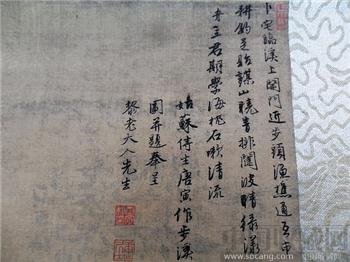 卜宅臨溪上開門近步頭漁樵通互市
耕釣足貽謀山曉青排闥波晴綠瀁
舟主君期學海枕石漱清流
姑蘇侍生唐寅作步溪
圖并題奉呈
黎老大人先生
www.socang.com